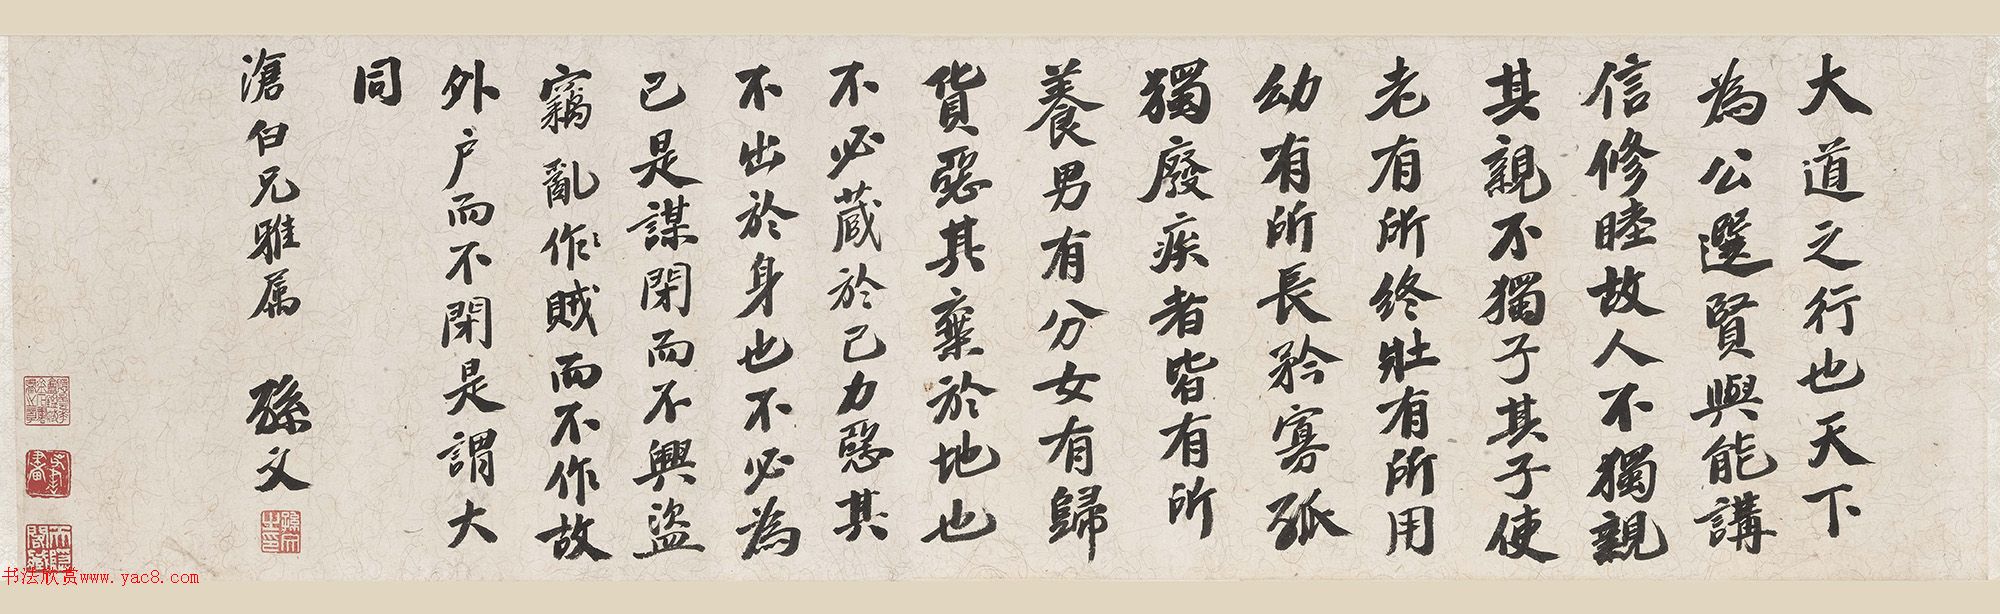 大道之行也天下
為公選賢與能講
信修睦故人不獨親
其親不獨子其子使
老有所終壯有所用
幼有所長矜寡孤
獨廢疾者皆有所
養男有分女有歸
貨惡其棄於地也
不必藏於己力惡其
不出於身也不必為
己是謀閉而不興盜
竊亂作賊而不作故
外户而不閉是謂大
同
滄白兄雅屬 孫文
孫文之印
书法欣赏www.yac8.com